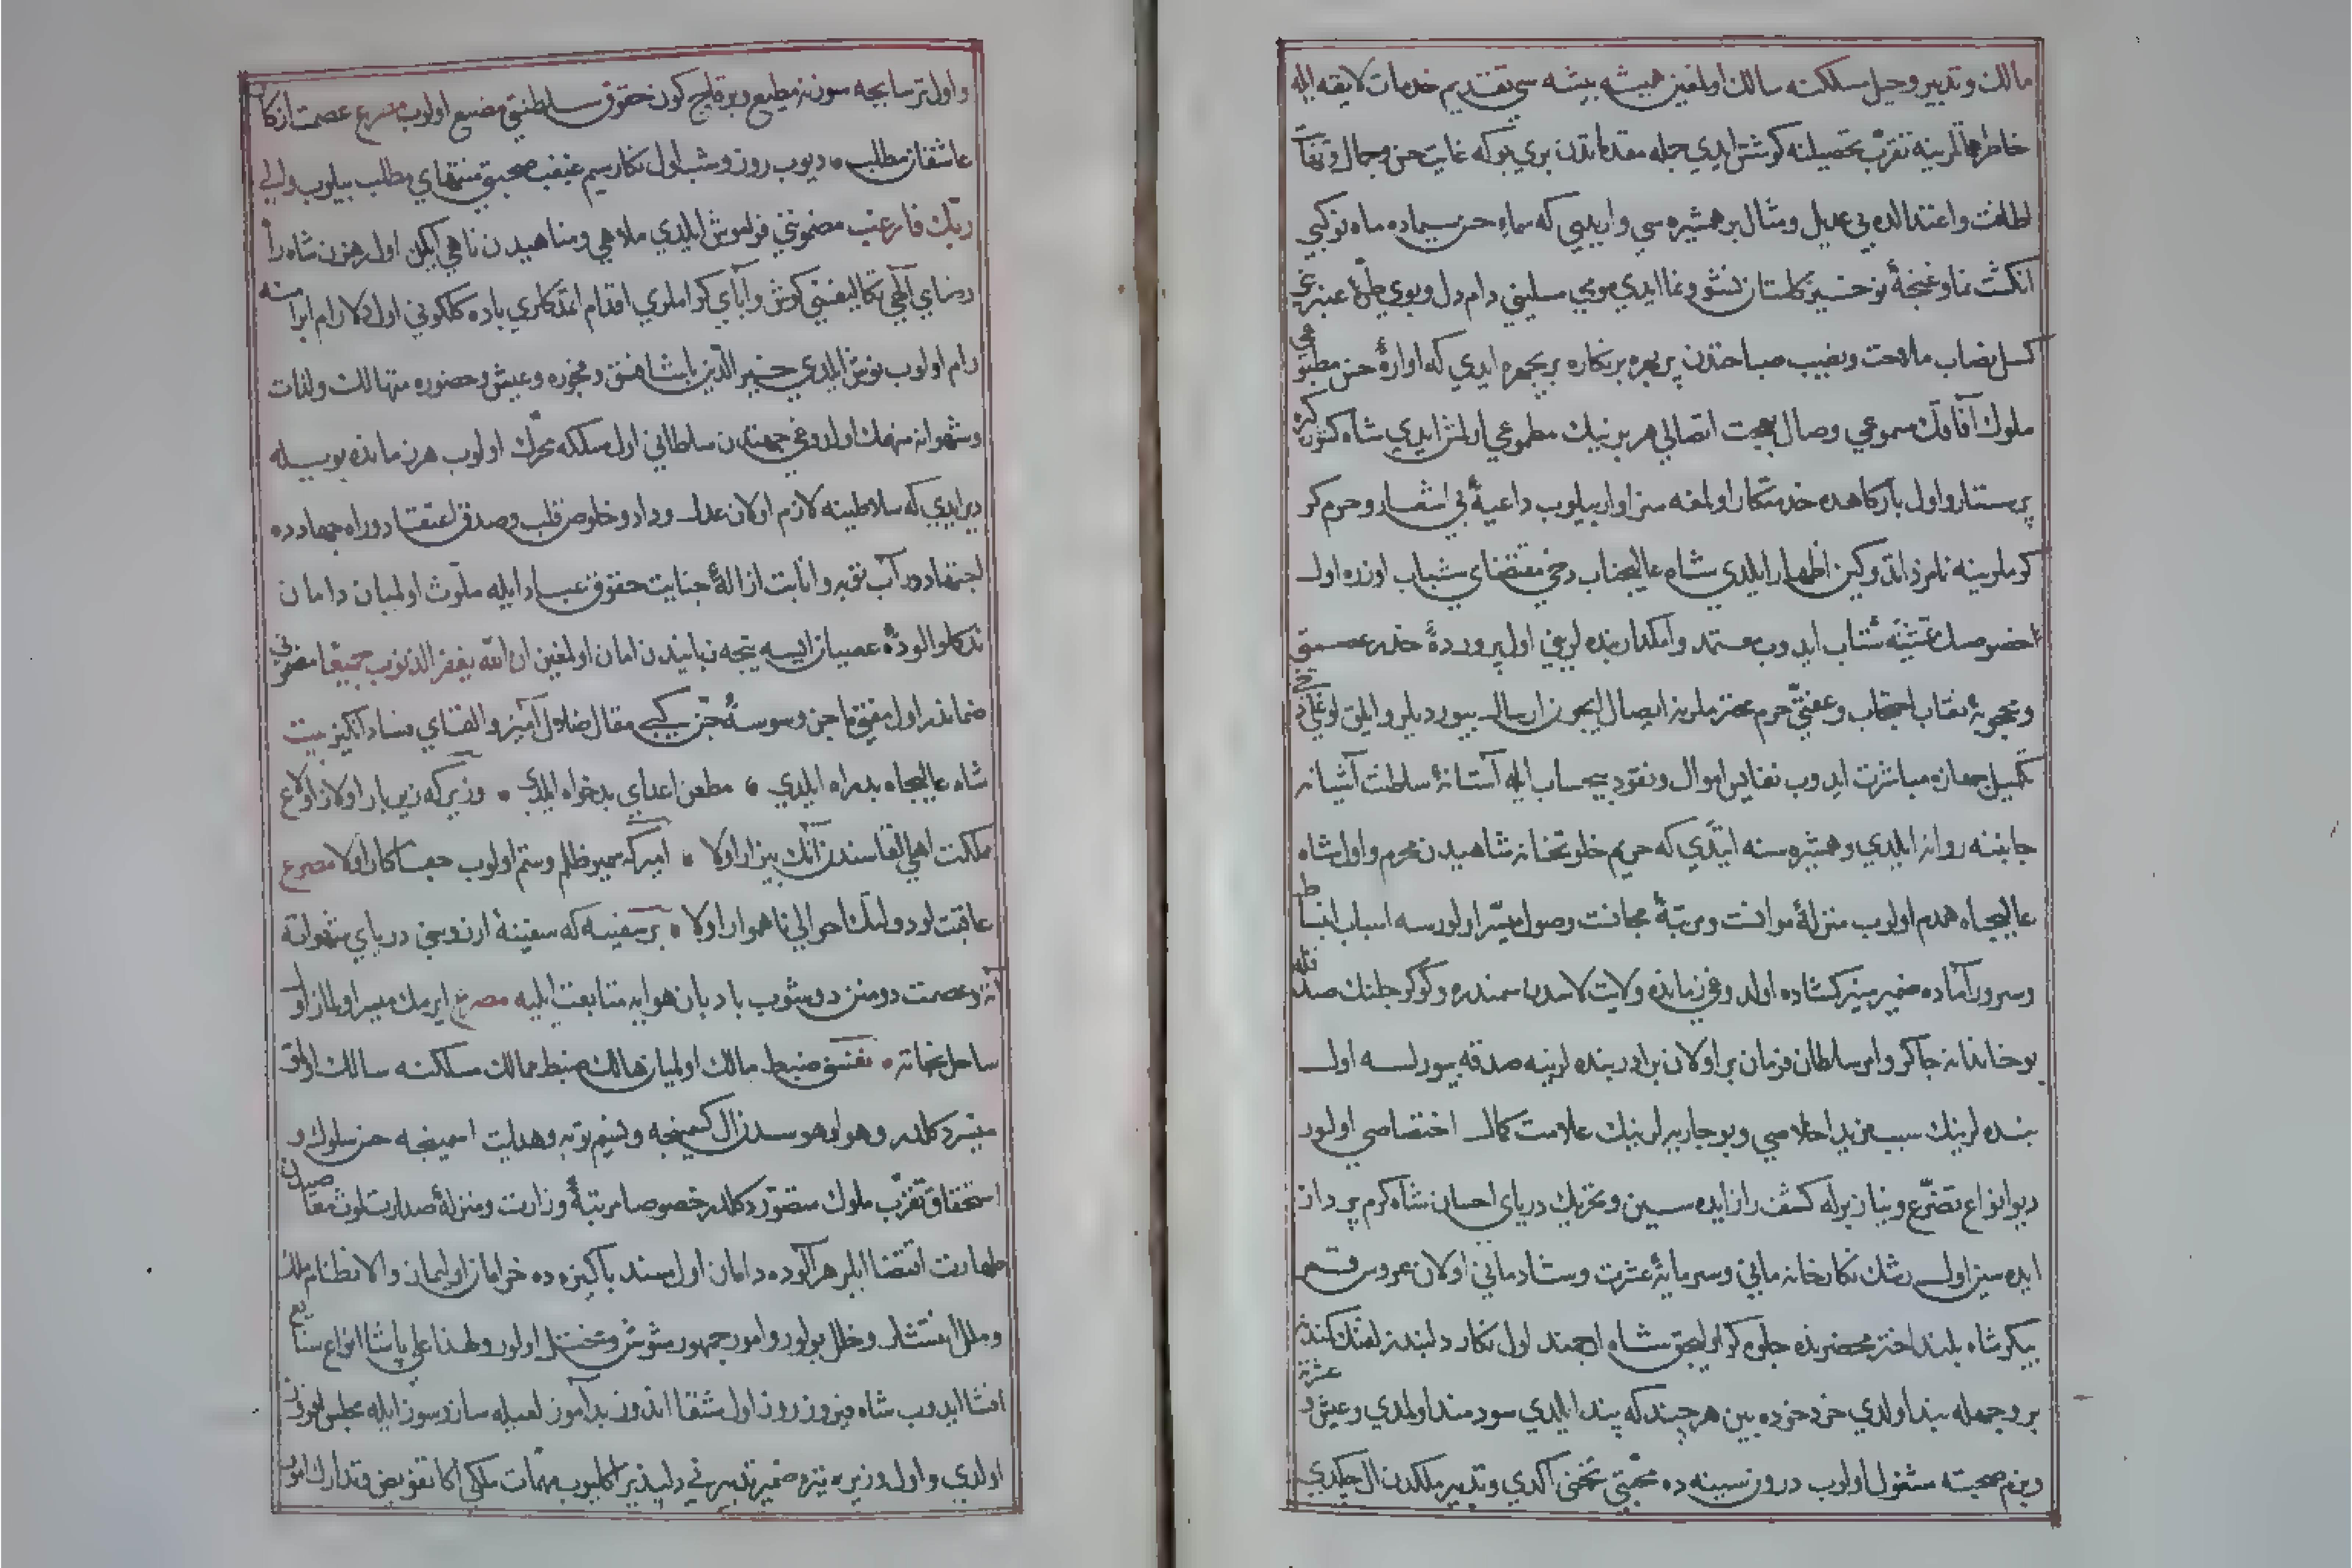 مالك و تدبير و حيل مسلكنه سالك اولمغين هميشه پيشه سي تقديم خدمات لايقه ايله
خاطرهالرينه تقرب تحصيلنه كوشش ايدي جمله مقدماتدن بري بو كه غايت حسن و جمال
لطافت و اعتدالده بي عديل و مثال بر همشيره سي وار ايدي كه سماء حسن سيماده ماه نو كبي
انكشت نما و غنچهٔ نو خيز كلستان نشو و نما ايدي موي مسلسلي دام دل و بوي طرهٔ عنبر
كسل نصاب ملاحت و نصيب صباحتدن پر بهره بر نكاره پر چهره ايدي كه اوازهٔ حسن مطبوعي
ملوك آفاقك مسموعي وصال بهجت اتصالي هر برينك مطموعي اولمش ايدي شاه كشور
پرستار و اول باركاهده خدمتكار اولمغه سزاوار بيلوب داعيهٔ بي اشعار و حرم
كرملرينه نامزد اندوكين اظهار ايلدي شاه عاليجناب دخي مقتضاي شباب اوزره اول
خصوصك تمشيتنه شتاب ايدوب معتمد و امكدار بنده لريني اول پروردهٔ خدر عصمتي
و محجوبهٔ نقاب احتجاب و عفتي حرم محترملرينه ايصال ايچون ارسال بيورديلر و ايلق اوغلي
تكميل جهازه مباشرت ايدوب نفايس اموال و نقود بيحساب ايله آستانهٔ سلطنت آشيانه
جانبنه روانه ايلدي و همشيره سنه ايتدي كه حريم خلوتخانه شاهيدن محرم و اول شاه
عاليجاه همدم اولوب منزلهٔ موانست و مرتبهٔ مجانست وصول ميسر اولورسه اسباب انبساط
و سرور آماده ضمير منير كشاده اولدوغي زمانده ولايت لامديا سمندره و كوكرجنلك
بو خاندانه چاكر و امر سلطان فرمان بر اولان برادر بنده لرينه صدقه بيورلسه اول
بنده لرينك سبب مزيد اخلاصي و بو جاريه لرينك علامت كمال اختصاصي اولور
ديو انواع تضرع و نياز برله كشف راز ايده سين و تحريك درياي احسان شاه كرم پرداز
ايده سين اول رشك نكارخانه ماني و سرمايهٔ عشرت و شادماني اولان عروس قمر
پيكر شاه بلند اختر محضرينده جلوه كر اوليجق شاه ارجمند اول نكار دلبندك زلفنك كمندينه
بر وجهله بند اولدي خرد خرده بين هر چند كه پند ايلدي سودمند اولمدي و عيش و عشرته
و بزم صحبته مشغول اولوب درون سينه ده محبتي تخمني اكدي و تدبير ملكدن ال چكدي
و اول ترسا بچه سوزنه مطيع و بره قلج كون حقوق سلطنتي مضيع اولوب مصرع عصمت
عاشقان مطلب • ديوب روز و شب اول نكار سيم غبغب صحبتي منتهاي مطلب بيلوب و الي
ربك فارغب مضموننی فراموش ايلدي ملاهي و مناهيدن ناهي ايكن اول رهزن شاه
رضاي آلهي تكاليفنى كوش و آباي كراملري اقدام اتمدكلري باده كلكوني اول دلارام ابرامنه
رام اولوب نوش ايلدي خير الدين پاشا فسق و فجوره و عيش و حضوره متهالك و لذات
و شهواته منهمك اولدوغي جهتدن سلطاني اول مسلكه محرك اولوب هر زمانده بويله
دير ايدي كه سلاطينه لازم اولان عدل و داد و خلوص قلب و صدق اعتقاد و راه جهادده
اجتهاددر آب توبه و انابت ازالهٔ جنايت حقوق عباد ايله ملوث اولميان دامان
ندكلو آلودهٔ عصيان ايسه نتيجه نيانيدن امان اولمغين ان الله يغفر الذنوب جميعا مضموني
ضماندر اول مفتي ماجن وسوسهٔ جن كبي مقال ضلال آميز و القاي فساد انكيز بيت
شاه عاليجاه بدراه ايلدي • مطعن اعداي بدخواه ايلدي • وزير كه زيربار اولان اولاع
مملكت اهلي القاسندن آنك بيزار اولا • امير كه سمير ظلم و ستم اولوب جفا كار اولا مصرع
عاقبت اول دولتك احوالي ناهموار اولا • بر سفينه كه سفينهٔ آرزوسي درياي شهواته
و عصمت دومنن دوشوب بادبان هوايه متابعت ايليه مصرع ايرمك ميسر اولماز او
ساحل نجاته • نفسني ضبطه مالك اولميان هالك ضبط ممالك مسلكنه سالك اولق
ميسر دكلدر و هوا و هوسدن ال كسمينجه و نسيم توبه و هدايت اسمينجه حسن سلوك و
استحقاق تقرب ملوك متصور دكلدر خصوصا مرتبهٔ وزارت و منزلهٔ صدارت لوث معاصيدن
طهارت اقتضا ايلر هر آلوده دامان اول مسند پاكيزه ده خرامان اوليمان و الا نظام ملك
و ملل انتشار و خلل بولور و امور جمهور مشوش و مختل اولور و لهذا علي پاشا انواع صنايع
افشا ايدوب شاه فيروز روز اول شقا اندوز بدآموز لعبيله ساز و سوز ايله مجلس افروز
اولدي و اول وزير تيره ضمير تدبيرني دلپذير اكليوب مهمات ملكي اكا تفويض و تدارك